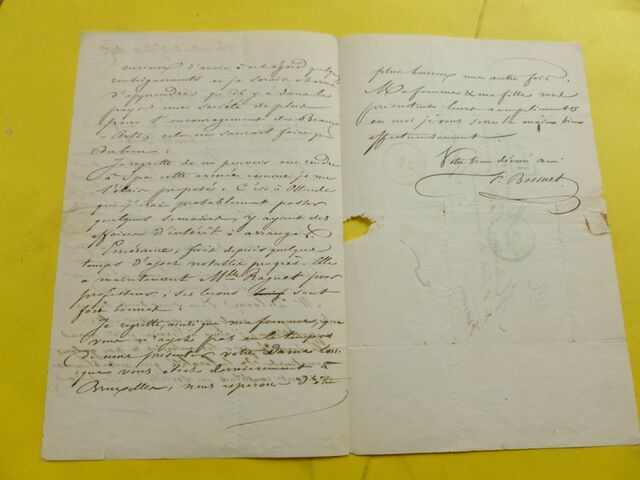 curieux d'avoir à cet égard quelques
renseignements et je serais charmé
d'apprendre qu'il y a dans le
pays une société de plus
pour l'encouragement des beaux
Arts, cela ne saurait faire que
du bien.
Je regrette de ne pouvoir me rendre
à Spa cette année comme je me
l'étais proposé. C'est à Ostende
que j'irai probablement passer
quelques semaines, y ayant des
affaires d'intérêt à arranger.
fait depuis quelque
temps d'assez notables progrès. Elle
a maintenant Mlle Baquet pour
professeur, ses leçons sont
fort bonnes.
Je regrette, ainsi que ma femme, que
vous n'ayez pas eu le temps
de nous présenter votre Dame lors
que vous étiez dernièrement à
Bruxelles, nous espérons d'être
plus heureux une autre fois.
Ma femme & ma fille vous
présentent leurs compliments
et moi je vous serre la main bien
affectueusement.
Votre bien dévoué ami
F. Bossuet